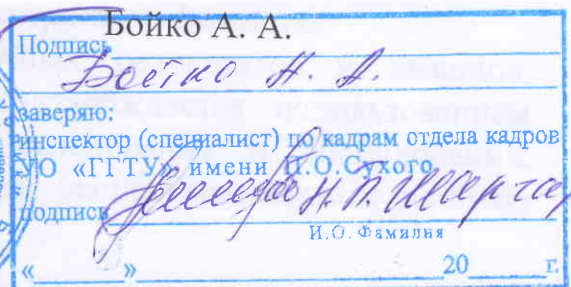 Бойко А. А.
Подпись
Бойко А. А.
заверяю:
инспектор (специалист) по кадрам отдела кадров
УО «ГГТУ» имени П.О.Сухого
подпись
И.О. Фамилия
« » 20 г.